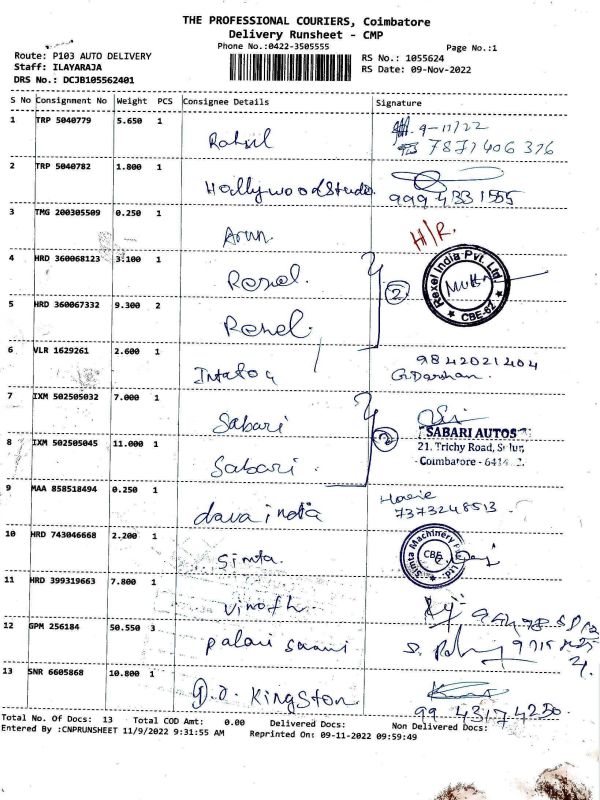 THE PROFESSIONAL COURIERS, Coimbatore
Delivery Runsheet - CMP
Phone No.:0422-3505555
Page No.:1
Route: P103 AUTO DELIVERY
RS No.: 1055624
Staff: ILAYARAJA
RS Date: 09-Nov-2022
DRS No.: DCJB105562401
S No Consignment No Weight PCS Consignee Details Signature
1 TRP 5040779 5.650 1 Rahul 9-11/22
7871406376
2 TRP 5040782 1.800 1 Hollywood Studio
9994331555
3 TMG 200305509 0.250 1 Arun H/R.
4 HRD 360068123 3.100 1 Rexel
2
Rexel India Pvt. Ltd. CBE-62
5 HRD 360067332 9.300 2 Rexel
6 VLR 1629261 2.600 1 9842021404
G.Darshan.
7 IXM 502505032 7.000 1 Sabari
SABARI AUTOS
8 IXM 502505045 11.000 1 Sabari 2
21, Trichy Road, Sulur,
Coimbatore -
9 MAA 858518494 0.250 1 dava india
7373248513
10 HRD 743046668 2.200 1 Simta
Simta Machinery Ltd. CBE
11 HRD 399319663 7.800 1 Vinoth
12 GPM 256184 50.550 3 Palani Saami
13 SNR 6605868 10.800 1 Kingston
99 43174250
Total No. Of Docs: 13 Total COD Amt: 0.00 Delivered Docs: Non Delivered Docs:
Entered By :CNPRUNSHEET 11/9/2022 9:31:55 AM Reprinted On: 09-11-2022 09:59:49